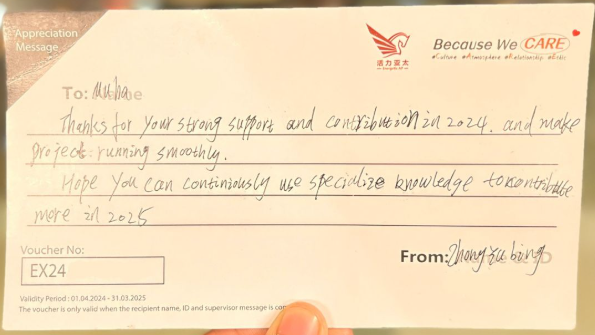 Appreciation
Message
洁力亚太
Because We CARE
To: Muha
Thanks for your strong support and contribution in 2024. and make
project running smoothly.
Hope you can continiously use specialize knowledge to contribute
more in 2025
Voucher No:
EX24
From: Zhong
Validity Period : 01.04.2024 - 31.03.2025
The voucher is only valid when the recipient name, ID and supervisor message is